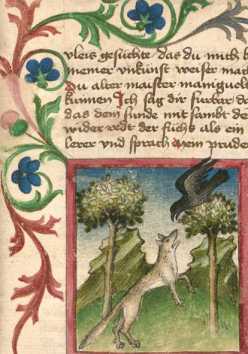 vleis gesüchte das du mich b
meiner vnkunst weiser mai
Du alter maister maniguelt
kunnen Ich sag dir furbar d
das dem hunde mit sambt de
wider redt der fuchs als ein
lerer vnd sprach mein prude